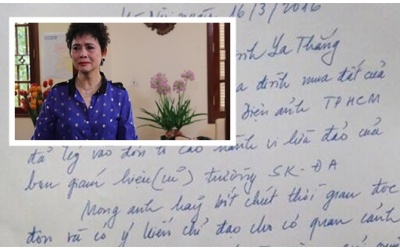 16/3/2016
Anh La Thăng
đình mua đất của
điện ảnh TPHCM
đã ký vào đơn tố cáo hành vi lừa đảo của
ban giám hiệu (cũ) trường SK-ĐA
Mong anh hãy bớt chút thời gian đọc
đơn và có ý kiến chỉ đạo cho cơ quan cảnh